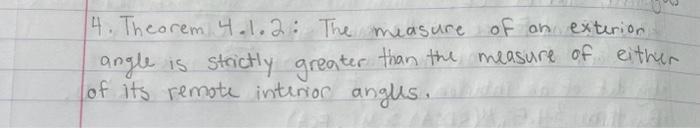 4. Theorem 4.1.2: The measure of an exterior
angle is strictly greater than the measure of either
of its remote interior angles.